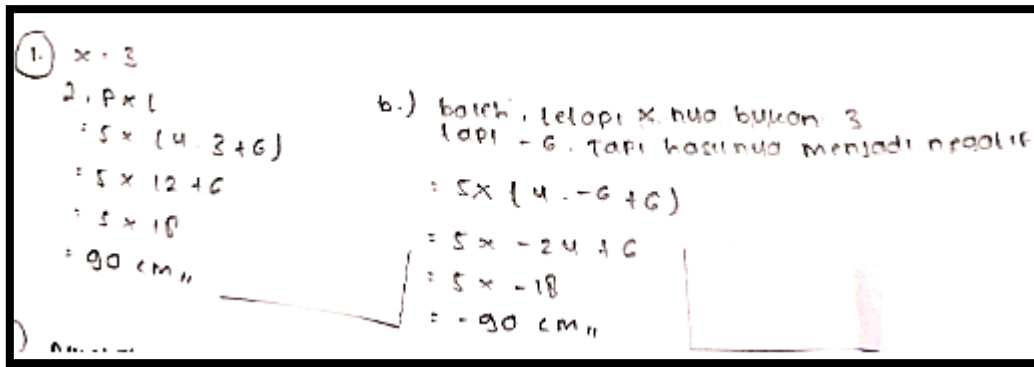 1. x = 3
2. P x l
= 5 x (4 . 3 + 6)
= 5 x 12 + 6
= 5 x 18
= 90 cm,,
b.) boleh, tetapi x nya bukan 3
tapi - 6. Tapi hasilnya menjadi negatif
= 5x (4 . -6 + 6)
= 5 x - 24 + 6
= 5 x - 18
= - 90 cm,,